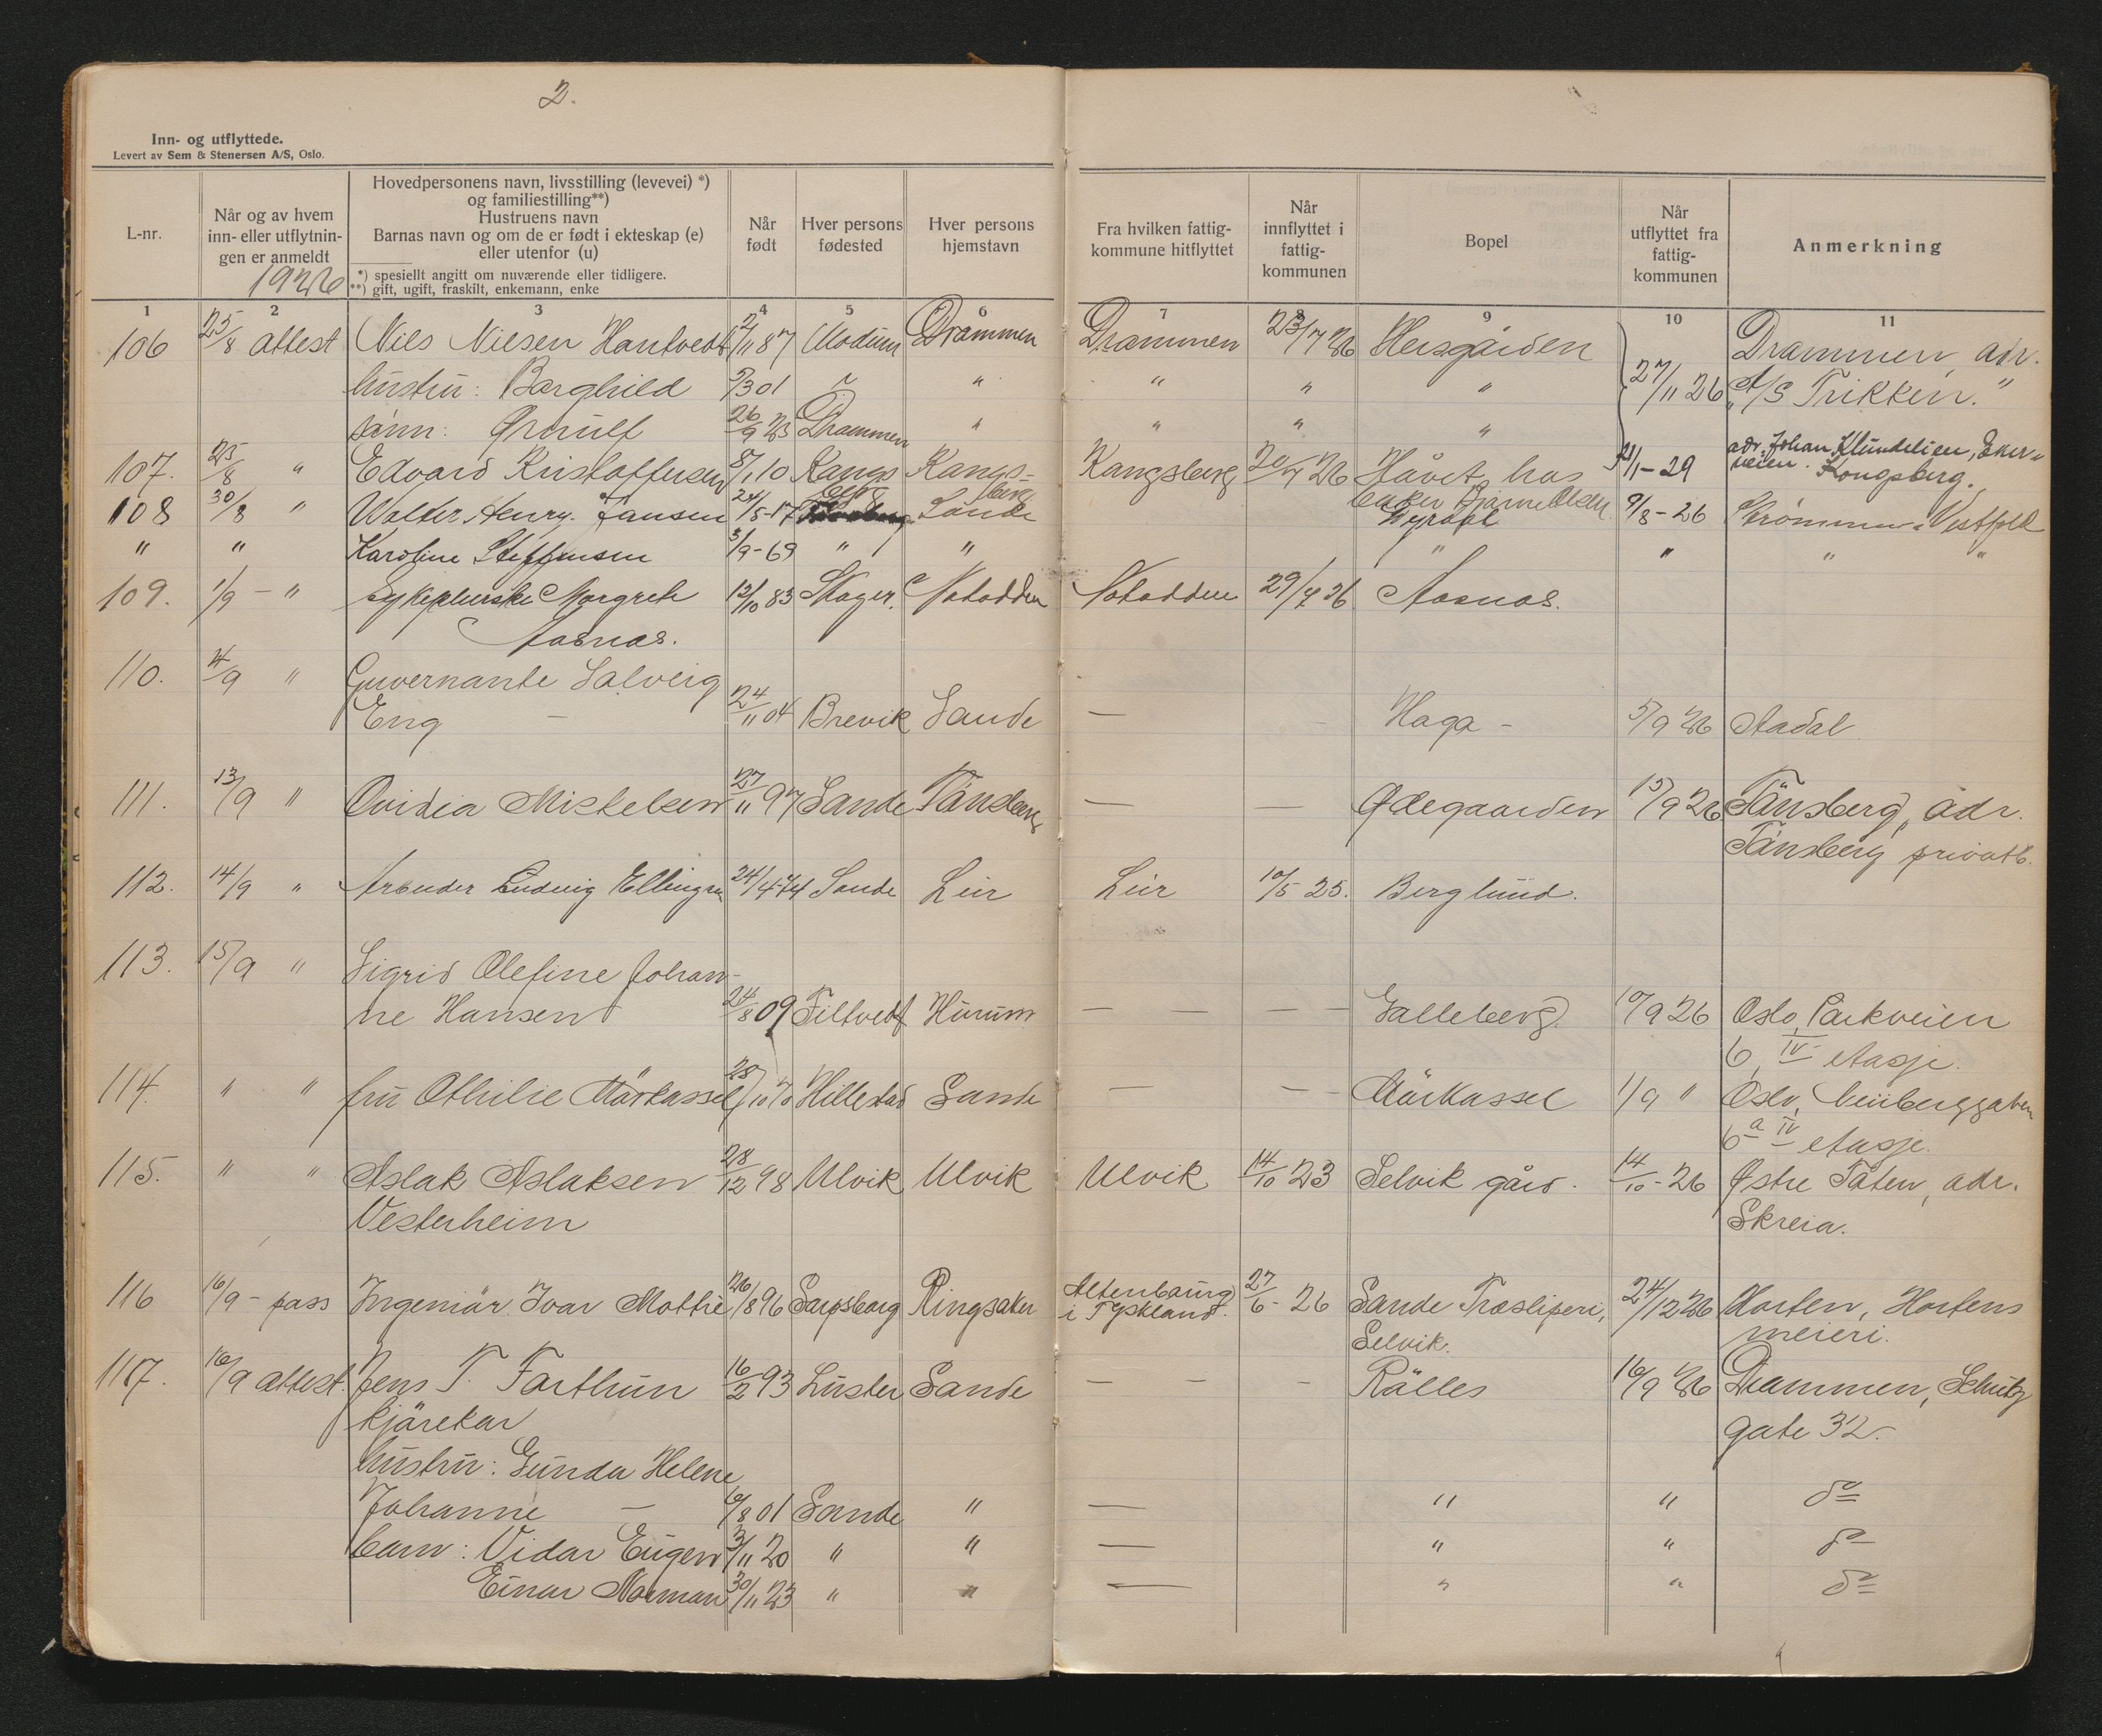 2.
Inn- og utflyttede.
Levert av Sem & Stenersen A/S, Oslo.
L-nr.
Når og av hvem inn- eller utflytnin- gen er anmeldt
1926
Hovedpersonens navn, livsstilling (levevei) *)
og familiestilling**)
Hustruens navn
Barnas navn og om de er født i ekteskap (e)
eller utenfor (u)
*) spesiellt angitt om nuværende eller tidligere.
**) gift, ugift, fraskilt, enkemann, enke
Når født
Hver persons fødested
Hver persons hjemstavn
Fra hvilken fattig- kommune hitflyttet
Når innflyttet i fattig- kommunen
Bopel
Når utflyttet fra fattig- kommunen
Anmerkning
1 2 3 4 5 6 7 8 9 10 11
106 25/8 attest Nils Nielsen Hantvedt 2/11 87 Modum Drammen Drammen 23/7 26 Hersgården Drammen, adr.
hustru: Borghild 5/3 01 " " " " " 27/11 26 "A/S Trikken."
sønn: Ørnulf 26/9 23 Drammen " " " "
107. 25/8 " Edvard Kristoffersen 8/1 10 Kongs berg Kongs- berg Kongsberg 20/7 26 Håvet hos 21/1-29 adr. Johan Klundelien, Eker-
baker Bjarne Olsen veien. Kongsberg.
108 30/8 " Walter Henry Jansen 24/5-17 Sande 9/8-26 Strømmen Vestfold
" " Karoline Steffensen 3/9-69 " " " " " "
109. 1/9 - " sykepleierske Margrete 12/10 83 Skoger. Notodden Notodden 29/7 26 Aasnas.
Aasnas.
110. 4/9 " Guvernante Solveig
Eng — 24/11 04 Brevik Sande — - Haga - 5/9 26 Aadal
111. 13/9 " Ovidia Mikkelsen 27/11 97 Sande Tönsberg — — Ødegaarden 15/9 26 Tönsberg, adr.
Tönsberg privatb.
112. 14/9 " Arbeider Ludvig Ellingsen 24/4-74 Sande Lier Lier 10/5 25. Berglund.
113. 15/9 " Sigrid Olefine Johan-
ne Hansen 24/8 09 Filtvedt Hurum — — — — Galleberg. 10/9 26 Oslo, Parkveien
6, IV etasje.
114. " " fru Othilie Mörkassel 28/10 70 Hillestad Sande — — Mörkassel 1/9 " Oslo,
6 a IV etasje.
115. " " Aslak Aslaksen 28/12 98 Ulvik Ulvik Ulvik 14/10 23 Selvik gård. 14/10-26 Østre Toten, adr.
Vesterheim Skreia.
116 16/9 - pass Ingeniör Ivar Mothe 26/8 96 Sarpsborg Ringsaker Altenbaurg i Tyskland. 27/6-26 Sande Træsliperi, 24/12 26 Horten, Hortens
Selvik. meieri.
117. 16/9 attest. Jens T. Farthun 16/2 93 Luster Sande - - - Rålles 16/9 26 Drammen, Schultz
kjörekar gate 32.
hustru: Gunda Helene
Johanne — 6/8 01 Sande " — " " do
barn: Vidar Eugen 3/11 20 " " — " " do
Einar Norman 30/11 23 " " — " " do